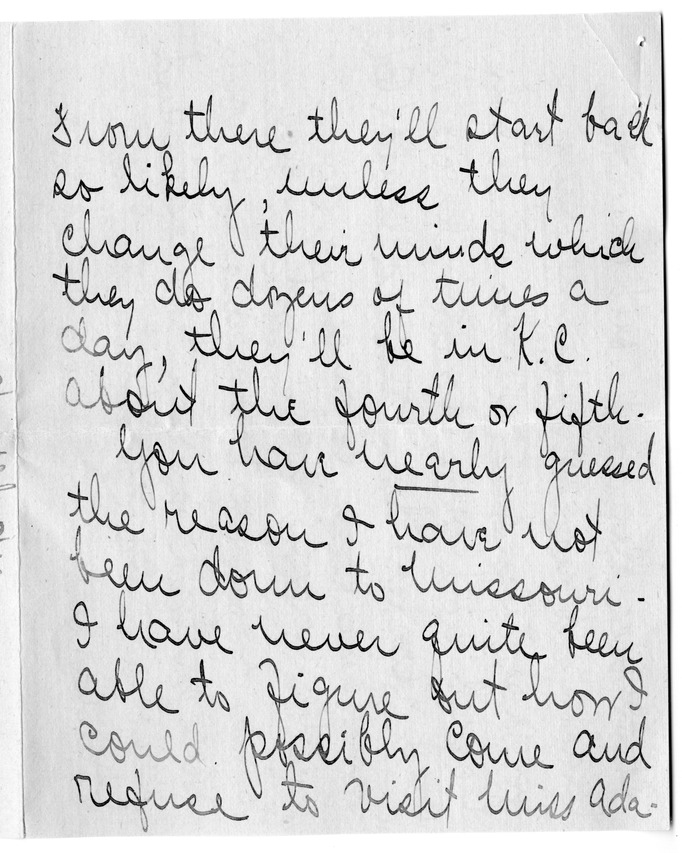 From there they'll start back
so likely, unless they
change their minds which
they do dozens of times a
day, they'll be in K.C.
about the fourth or fifth.
You have nearly guessed
the reason I have not
been down to Missouri.
I have never quite been
able to figure out how I
could possibly come and
refuse to visit Miss Ada-